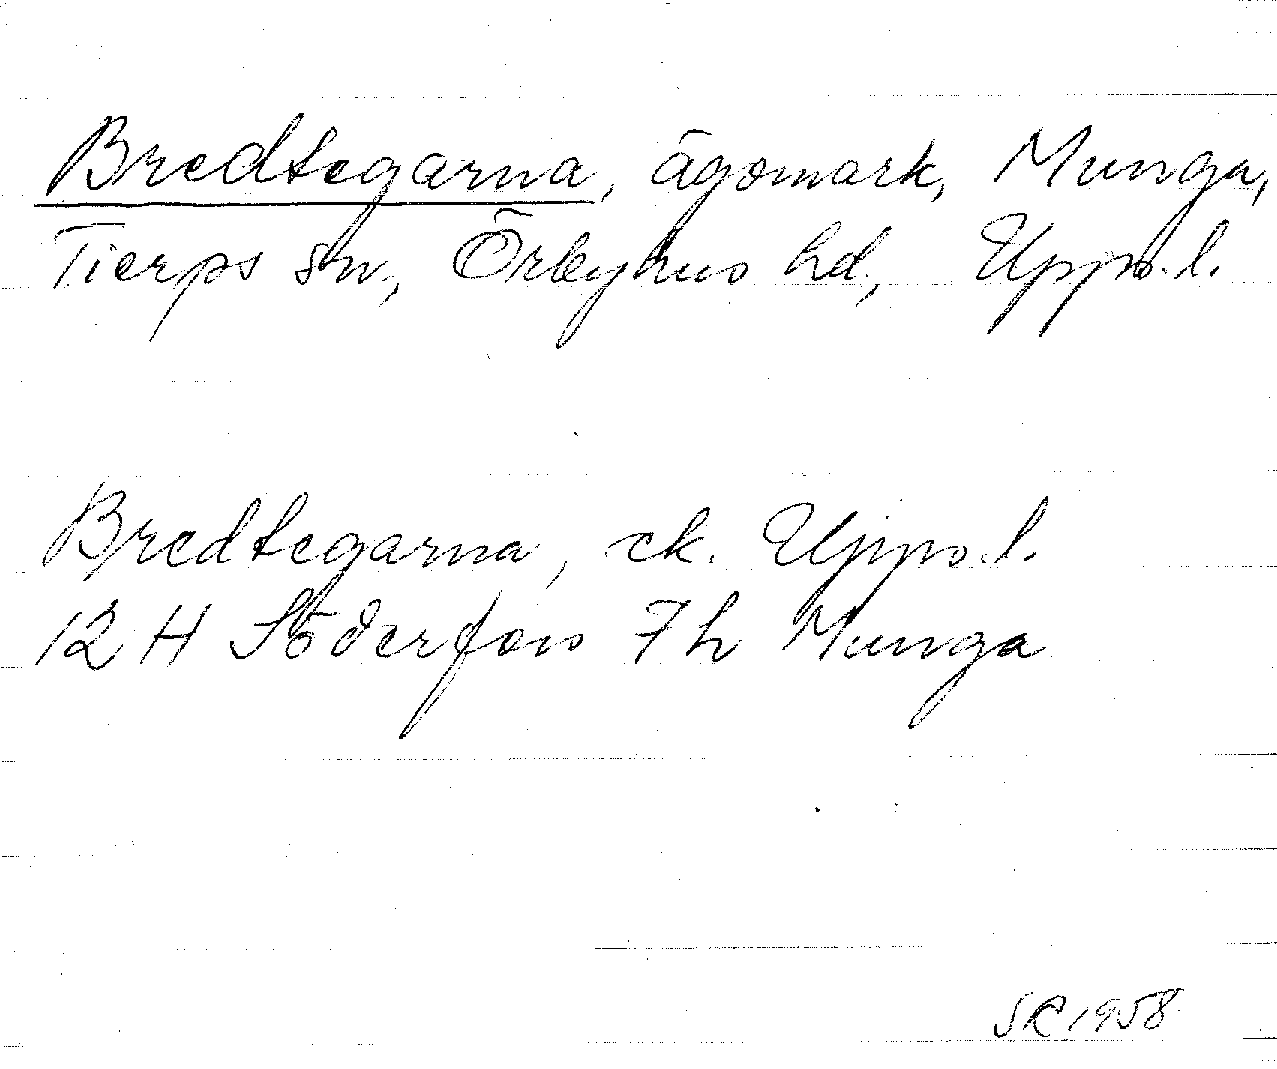 Bredtegarna, ägomark, Munga,
Tierps sn, Örbyhus hd, Upps.l.
Bredtegarna, ek. Upps.l.
12 H Söderfors 7 h Munga
SR 1958